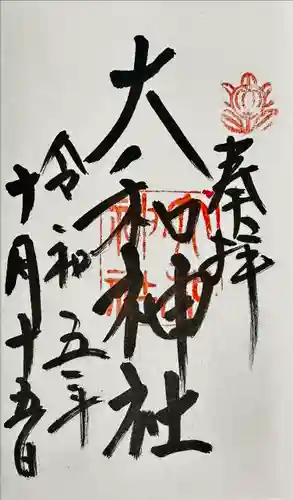 奉拝
大和神社
令和五年
十月十五日